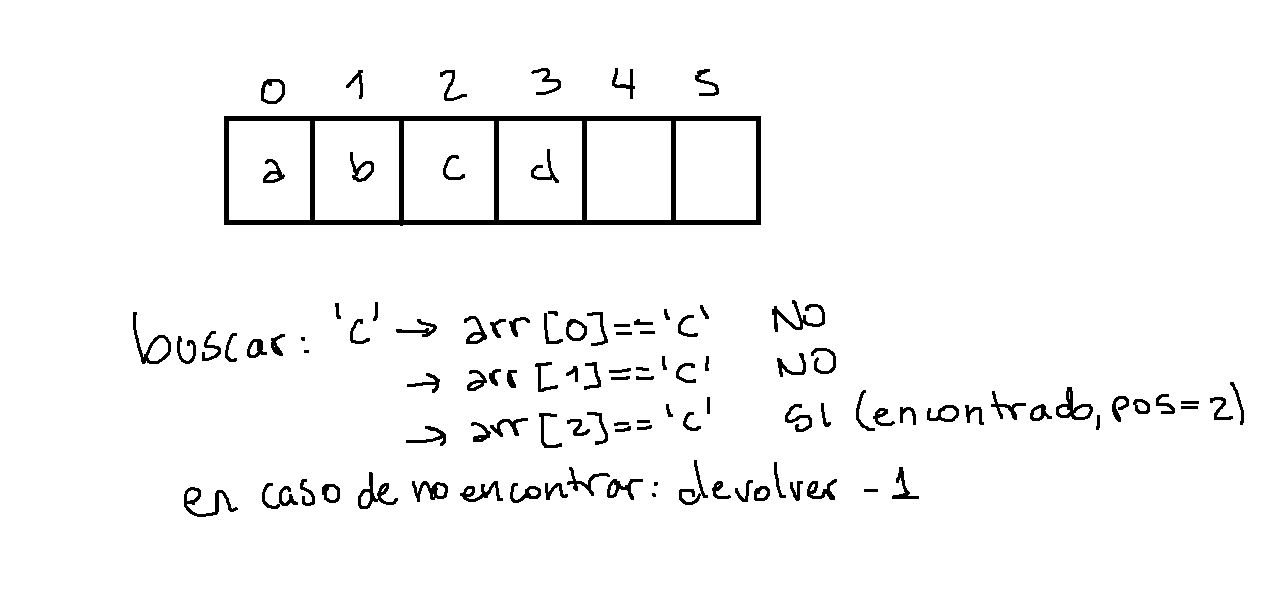 0 1 2 3 4 5
a b c d
buscar: 'c' → arr[0]=='c' NO
→ arr[1]=='c' NO
→ arr[2]=='c' SI (encontrado, pos=2)
en caso de no encontrar: devolver -1